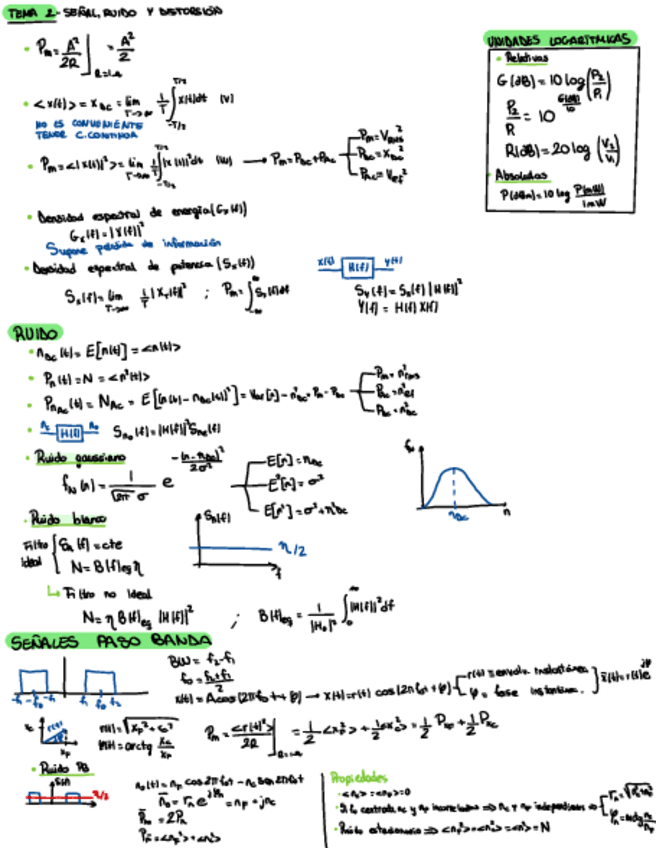 TEMA 2 - SEÑAL, RUIDO Y DISTORSIÓN
• Pm = A²/2R |R=1Ω = A²/2
• <x(t)> = XDC = lim T→∞ 1/T ∫-T/2^T/2 x(t)dt (V)
NO ES CONVENIENTE
TENER C.CONTINUA
• Pm = <|x(t)|²> = lim T→∞ 1/T ∫-T/2^T/2 |x(t)|²dt (W) → Pm = PDC + PAC
Pm = Vrms²
PDC = XDC²
PAC = Vef²
• Densidad espectral de energía (Gx(f))
Supone pérdida de información
• Densidad espectral de potencia (Sx(f))
Sx(f) = lim T→∞ 1/T |XT(f)|² ; Pm = ∫-∞^∞ Sx(f)df
x(t) H(f) y(t)
Sy(f) = Sx(f) |H(f)|²
Y(f) = H(f) X(f)
UNIDADES LOGARITMICAS
• Relativas
G(dB) = 10 log (P2/P1)
P2/P1 = 10^G(dB)/10
R(dB) = 20 log (V2/V1)
• Absolutas
P(dBm) = 10 log P(mW)/1mW
RUIDO
• nDC(t) = E[n(t)] = <n(t)>
• Pn(t) = N = <n²(t)>
• PnAC(t) = NAC = E[(n(t) - nDC(t))²] = Var[n] = n²DC = Pm - PDC
Pm = n²rms
PAC = n²ef
PDC = n²DC
• H(f) Sn0(f) = |H(f)|² Sne(f)
• Ruido gaussiano
fN(n) = 1/√2π σ e^-(n-nDC)²/2σ²
E[n] = nDC
E²[n] = σ²
E[n²] = σ² + n²DC
fN nDC n
• Ruido blanco
Filtro Ideal
Sn(f) = cte
N = B(f)eq η
Sn(f) η/2 f
↳ Filtro no Ideal
N = η B(f)eq |H(f)|² ; B(f)eq = 1/|H0|² ∫0^∞ |H(f)|² df
SEÑALES PASO BANDA
-f2 -f0 -f1 f1 f0 f2
BW = f2 - f1
f0 = f2+f1/2
x(t) = A cos(2πf0t + φ) → x(t) = r(t) cos(2πf0t + φ)
r(t) = envolv. instantánea
φ = fase instantánea.
x̃(t) = r(t)e^jφ
xc r(t) xp
r(t) = √xp² + xc²
φ(t) = arctg xc/xp
Pm = <r(t)²>/2R |R=1Ω = 1/2 <xp²> + 1/2 <xc²> = 1/2 Pxp + 1/2 Pxc
• Ruido PB
η/2
n0(t) = np cos 2πf0t - nc sen 2πf0t
ñ0 = rn e^jφn = np + jnc
Pñ = 2Pn
Pñ = <np²> + <nc²>
Propiedades
• <nc> = <np> = 0
• Ruido estacionario ⇒ <np²> = <nc²> = <n²> = N